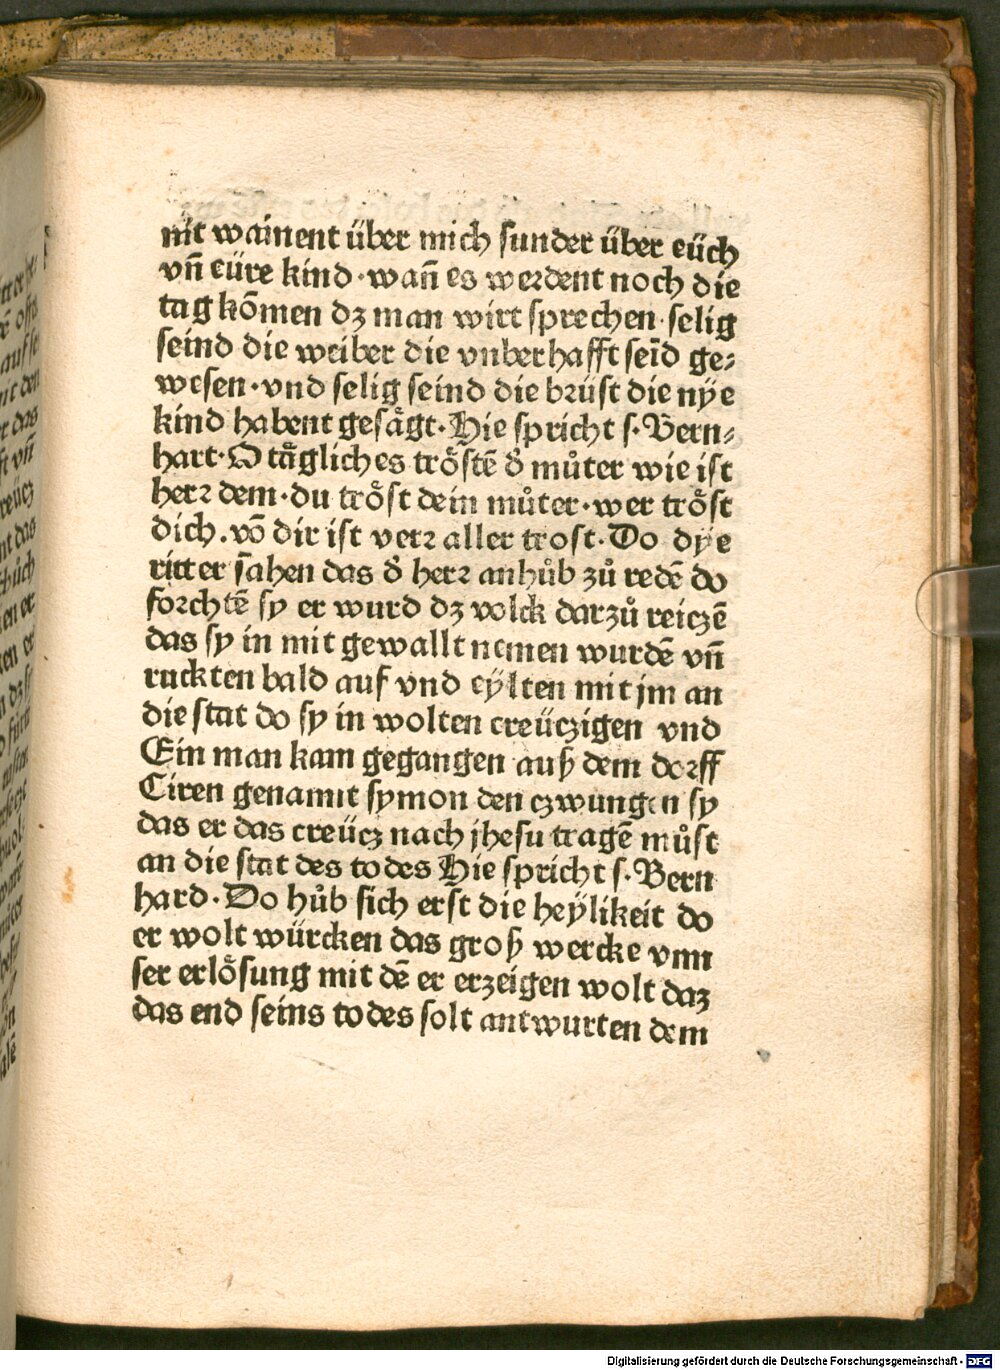 nit wainent über mich sunder über eüch
vñ eüre kind · wañ es werdent noch die
tag kōmen dz man wirt sprechen · selig
seind die weiber die vnberhafft seīd ge⸗
wesen · vnd selig seind die brüst die nÿe
kind habent gesaͤgt · Hie spricht s · Bern⸗
hart · O taͤgliches troͤstē d̄ muͤter wie ist
herꝛ dem · du troͤst dein muͤter · wer troͤst
dich . vō dir ist verꝛ aller trost · Do dÿe
ritter sahen das d̄ herꝛ anhuͦb zuͦ redē do
forchtē sy er wurd dz volck darzuͦ reiczē
das sy in mit gewallt nemen wurdē vñ
ruckten bald auf vnd eÿlten mit jm an
die stat do sy in wolten creüczigen vnd
Ein man kam gegangen auß dem dorff
Ciren genamt symon den czwungen sy
das er das creücz nach jhesu tragē muͤst
an die stat des todes Hie spricht s · Bern
hard · Do huͦb sich erst die heÿlikeit do
er wolt würcken das groß wercke vnn
ser erloͤsung mit dē er erzeigen wolt daz
das end seins todes solt antwurten dem
Digitalisierung gefördert durch die Deutsche Forschungsgemeinschaft - DFG